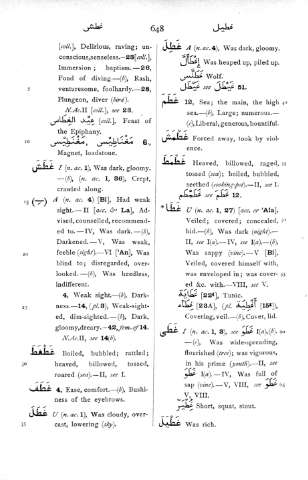 غطيل
648
غطش
[coll.], Delirious, raving; un-
conscious, senseless.—28[coll.],
Immersion; baptism.—26,
Fond of diving—(b), Rash,
venturesome, foolhardy.—28,
Plungeon, diver (bird).
N.Ac.II [coll.], see 23.
عيد الغطاس [coll.], Feast of
the Epiphany.
مغناطيس, مغنطيس 6,
Magnet, loadstone.
غطش I (n. ac. 1), Was dark, gloomy.
—(b), (n. ac. 1, 36), Crept,
crawled along.
A (n. ac. 4) [Bi], Had weak
sight.—II [acc. & La], Ad-
vised, counselled, recommend-
ed to.—IV, Was dark.—(b),
Darkened.—V, Was weak,
feeble (sight)—VI ['An], Was
blind to; disregarded, over-
looked.—(b), Was heedless,
indifferent.
4, Weak sight.—(b), Dark-
ness.—14, (pl. 3), Weak-sight-
ed, dim-sighted.—(b), Dark,
gloomy, dreary.—42, fem. of 14.
N.Ac.II, see 14(b).
غطغط Boiled, bubbled; rattled;
heaved, billowed, tossed,
roared (sea).—II, see I.
غطف 4, Ease, comfort.—(b), Bushi-
ness of the eyebrows.
غطل U (n. ac. 1), Was cloudy, over-
cast, lowering (sky).
غطل A (n. ac. 4), Was dark, gloomy.
Was heaped up, piled up.
Wolf.
see 51.
غطم 12, Sea; the main, the high
sea.—(b), Large; numerous.—
(c), Liberal, generous, bountiful.
غطمش Forced away, took by viol-
ence.
غطمط Heaved, billowed, raged,
tossed (sea); boiled, bubbled,
seethed (cooking-pot).—II, see I.
see 12.
U (n. ac. 1, 27) [acc. or 'Ala],
Veiled; covered; concealed,
hid.—(b), Was dark (night).—
II, see I(a).—IV, see I(a).—(b),
Was sappy (vine).—V [Bi],
Veiled, covered himself with,
was enveloped in; was cover-
ed &c. with.—VIII, see V.
غطاية [22t], Tunic.
[23A], (pl. أغطية [15t]),
Covering, veil.—(b), Cover, lid.
غطى I (n. ac. 1, 3), see I(a), (b).
—(c), Was wide-spreading,
flourished (tree); was vigorous,
in his prime (youth).—II, see
I(a).—IV, Was full of
sap (vine).—V, VIII, see
V, VIII.
Short, squat, stout.
غطيل Was rich.